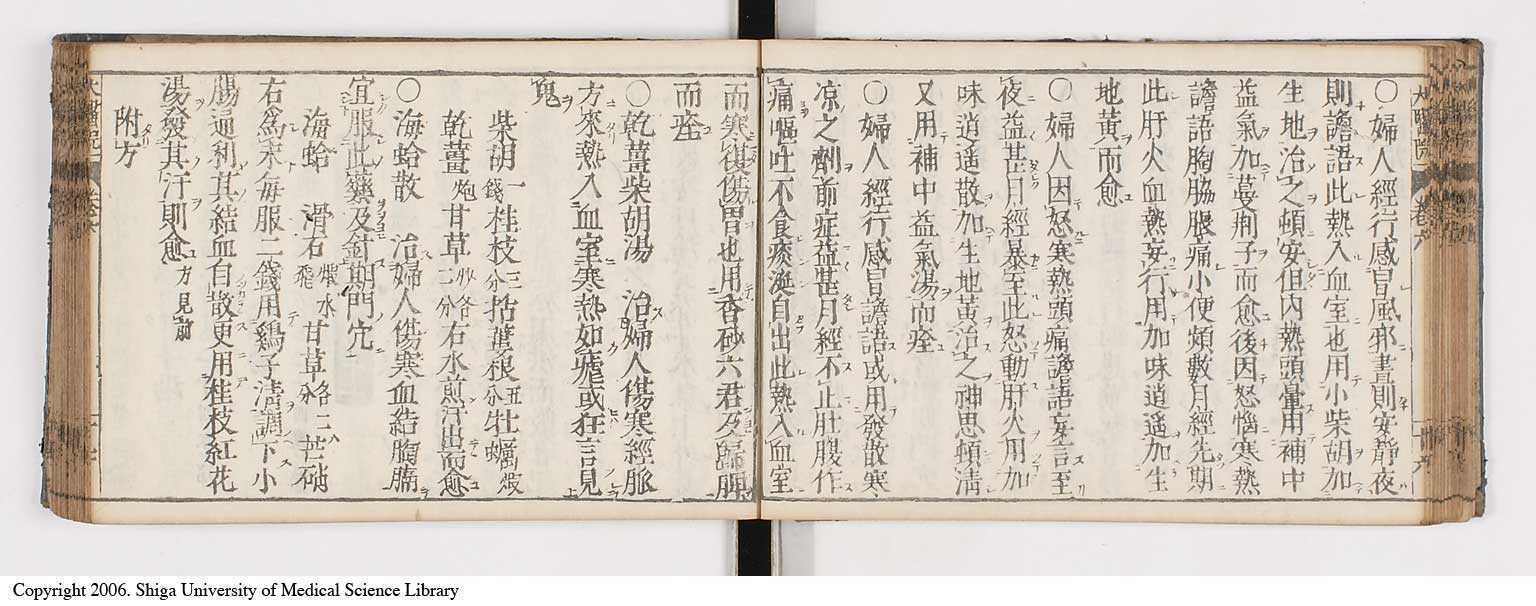 〇婦人經行感冒風邪晝則安靜夜
則譫語此熱入血室也用小柴胡加
生地治之頓安但内熱頭暈用補中
益氣加蔓荊子而愈後因怒惱寒熱
譫語胸脇脹痛小便頻數月經先期
此肝火血熱妄行用加味逍遙加生
地黃而愈
〇婦人因怒寒熱頭痛譫語妄言至
夜益甚月經暴至此怒動肝火用加
味逍遙散加生地黃治之神思頓淸
又用補中益氣湯而痊
〇婦人經行感冒譫語或用發散寒
凉之劑前症益甚月經不止肚腹作
痛嘔吐不食痰涎自出此熱入血室
而寒復傷胃也用香砂六君及歸脾
而痊
〇乾薑柴胡湯 治婦人傷寒經脈
方來熱入血室寒熱如瘧或狂言見
鬼
柴胡一錢桂枝三分括蔞根五分牡蠣煅
乾薑炮甘草炒各二分右水煎汗出而愈
〇海蛤散 治婦人傷寒血結胸膈
宜服此藥及針期門穴
海蛤 滑石 甘草各二分芒硝
右爲末每服二錢用鷄子淸調下小
腸通利其結血自散更用桂枝紅花
湯發其汗則愈方見前
附方
卷六
十六